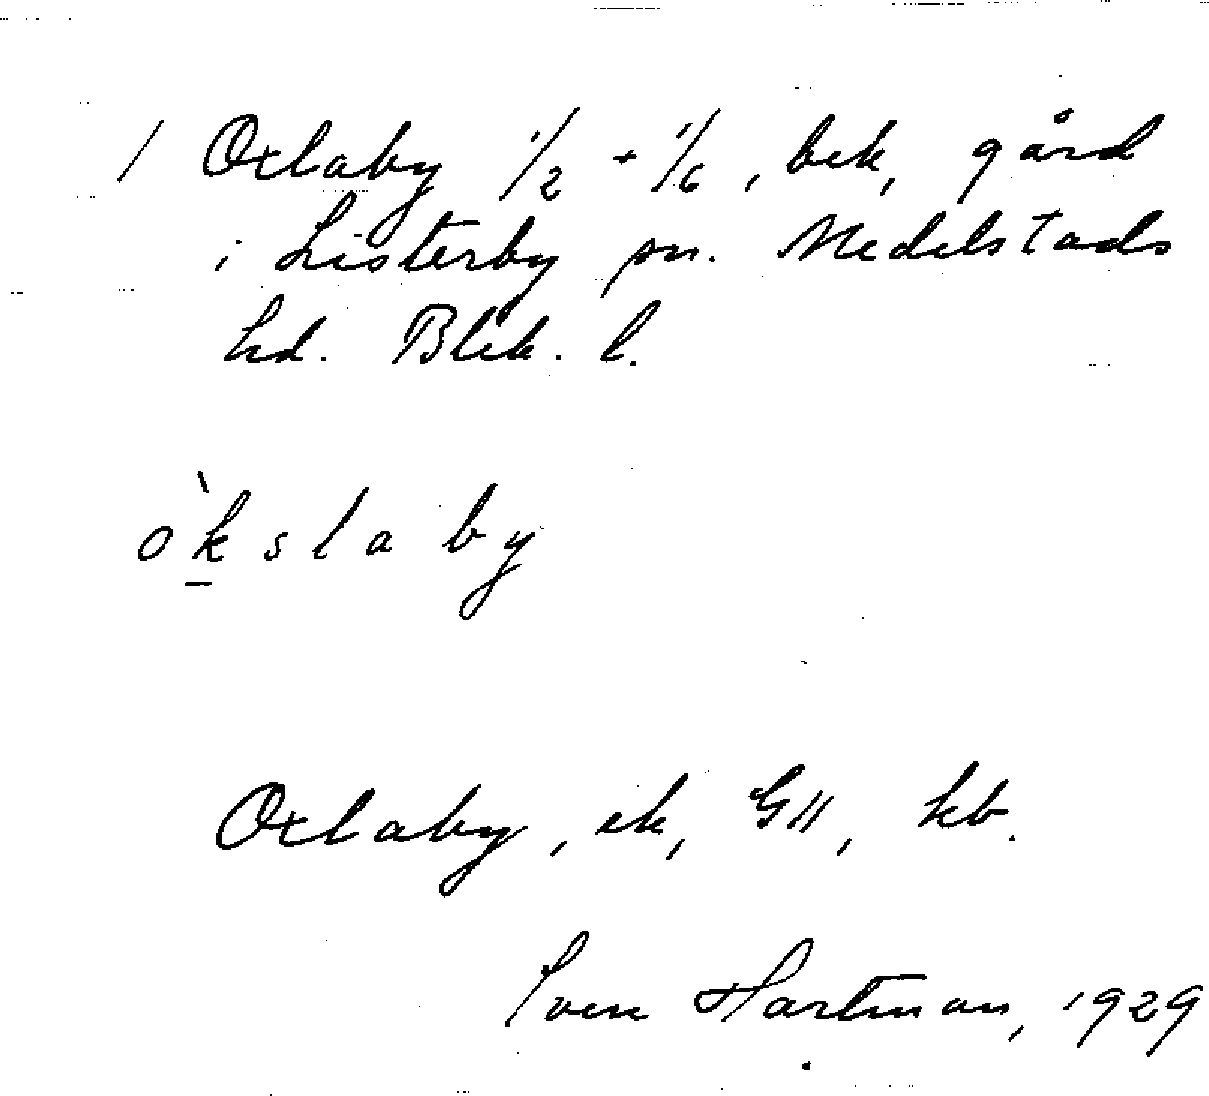 / Oxlaby 1/2 + 1/6, bek, gård
i Listerby sn. Medelstads
hd. Blek. l.
òkslaby
Oxlaby, ek, GII, kb.
Sven Hartman, 1929